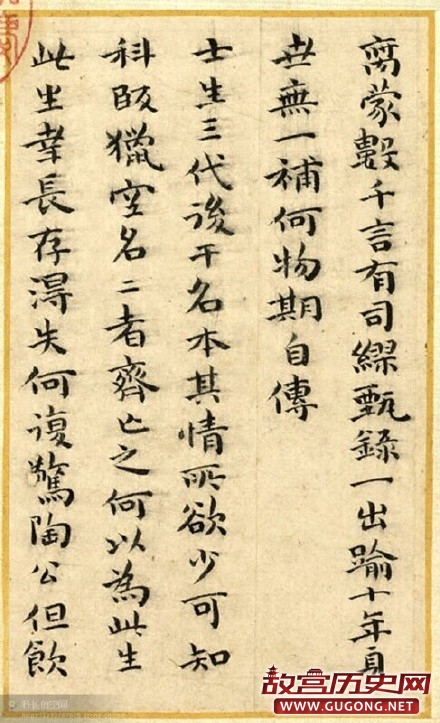 離蒙數千言有司繆甄錄一出踰十年身
世無一補何物期自傳
士生三代後干名本其情所欲少可知
科段獵空名二者齊亡之何以為此生
此生幸長存得失何復驚陶公但飲
故宫历史网
WWW.GUGONG.NET